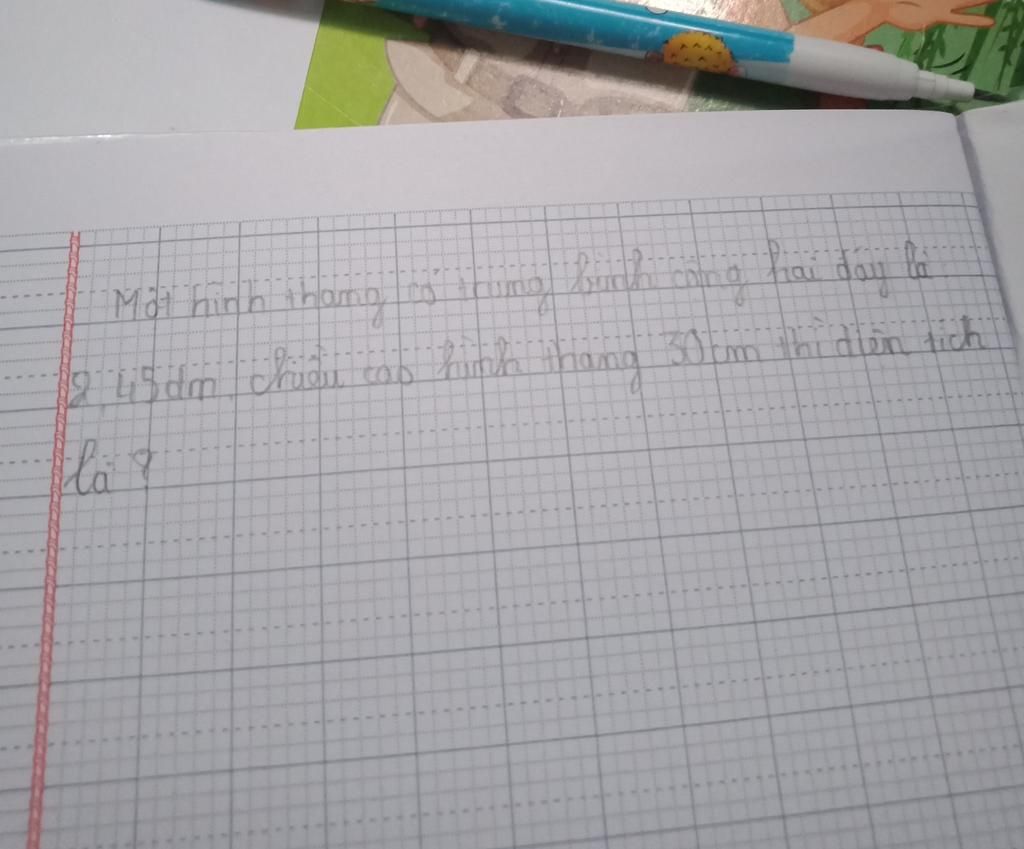 Một hình thang có trung bình cộng hai đáy là
2,45dm, chiều cao hình thang 30cm thì diện tích
là?